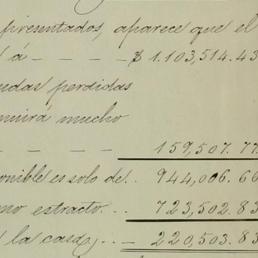 presentados, aparece que el
á - - - - $ 1.103,514.43
udas perdidas
nuirá mucho
- - - - 159,507.77
onible es solo de.. 944,006.66
mo estracto... 723,502.83
la casa, -- 220,503.83